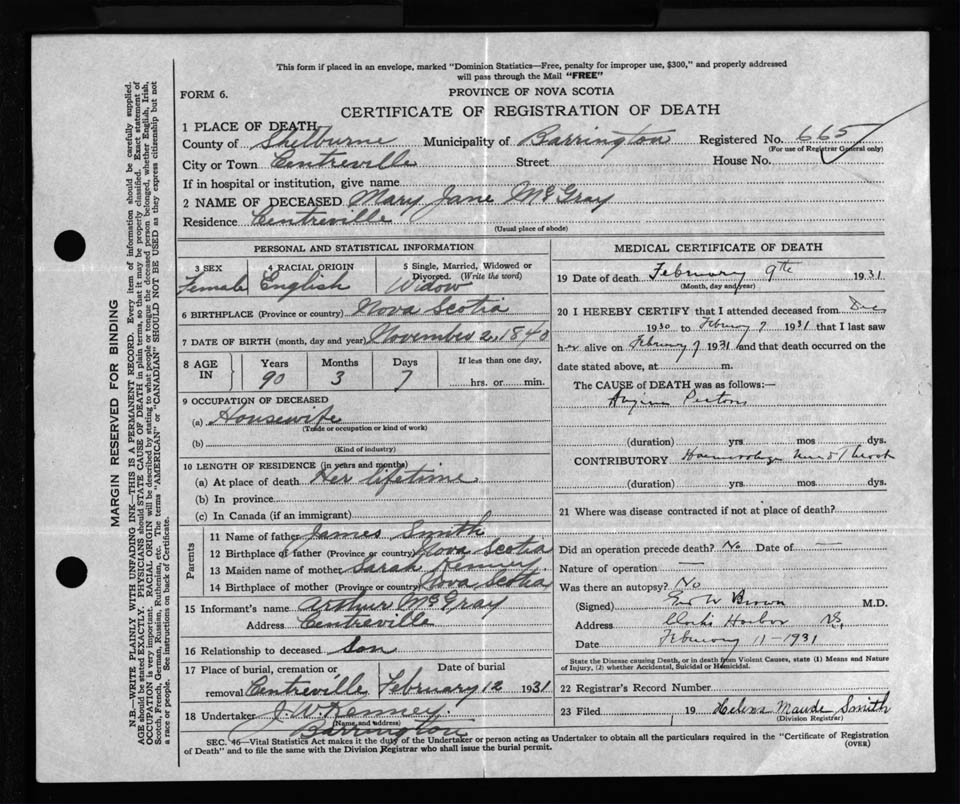 This form if placed in an envelope, marked "Dominion Statistics—Free, penalty for improper use, $300," and properly addressed
will pass through the Mail "FREE"
FORM 6.
PROVINCE OF NOVA SCOTIA
CERTIFICATE OF REGISTRATION OF DEATH
1 PLACE OF DEATH
County of Shelburne Municipality of Barrington Registered No. 665
(For use of Registrar General only)
City or Town Centreville Street House No.
If in hospital or institution, give name
2 NAME OF DECEASED Mary Jane McGray
Residence Centreville
(Usual place of abode)
PERSONAL AND STATISTICAL INFORMATION
3 SEX 4 RACIAL ORIGIN 5 Single, Married, Widowed or
Divorced. (Write the word)
Female English Widow
6 BIRTHPLACE (Province or country) Nova Scotia
7 DATE OF BIRTH (month, day and year) November 2, 1840
8 AGE IN Years Months Days If less than one day,
90 3 7 hrs. or min.
9 OCCUPATION OF DECEASED
(a) Housewife
(Trade or occupation or kind of work)
(b)
(Kind of industry)
10 LENGTH OF RESIDENCE (in years and months)
(a) At place of death Her lifetime
(b) In province
(c) In Canada (if an immigrant)
Parents
11 Name of father James Smith
12 Birthplace of father (Province or country) Nova Scotia
13 Maiden name of mother Sarah Kenney
14 Birthplace of mother (Province or country) Nova Scotia
15 Informant's name Arthur McGray
Address Centreville
16 Relationship to deceased Son
17 Place of burial, cremation or Date of burial
removal Centreville February 12 1931
18 Undertaker J W Kenney
(Name and address)
Barrington
MEDICAL CERTIFICATE OF DEATH
19 Date of death February 9th 1931
(Month, day and year)
20 I HEREBY CERTIFY that I attended deceased from Dec
1930 to February 7 1931 that I last saw
her alive on February 7 1931 and that death occurred on the
date stated above, at m.
The CAUSE of DEATH was as follows:—
Angina Pectoris
(duration) yrs mos dys.
CONTRIBUTORY Haemorrhage
(duration) yrs mos dys.
21 Where was disease contracted if not at place of death?
Did an operation precede death? No Date of —
Nature of operation —
Was there an autopsy? No
(Signed) Brown M.D.
Address Clarks Harbor N.S.
Date February 11-1931
State the Disease causing Death, or in death from Violent Causes, state (1) Means and Nature
of Injury, (2) whether Accidental, Suicidal or Homicidal.
22 Registrar's Record Number
23 Filed 19 Helena Maude Smith
(Division Registrar)
SEC. 46—Vital Statistics Act makes it the duty of the Undertaker or person acting as Undertaker to obtain all the particulars required in the "Certificate of Registration
of Death" and to file the same with the Division Registrar who shall issue the burial permit. (OVER)
MARGIN RESERVED FOR BINDING
N.B.—WRITE PLAINLY WITH UNFADING INK—THIS IS A PERMANENT RECORD. Every item of information should be carefully supplied.
AGE should be stated EXACTLY. PHYSICIANS should STATE CAUSE OF DEATH in plain terms, so that it may be properly classified. Exact statement of
OCCUPATION is very important. RACIAL ORIGIN will be described by stating to what people or tongue the deceased person belonged, whether English, Irish,
Scotch, French, German, Russian, Ruthenian, etc. The terms "AMERICAN" or "CANADIAN" SHOULD NOT BE USED as they express citizenship but not
a race or people. See instructions on back of Certificate.